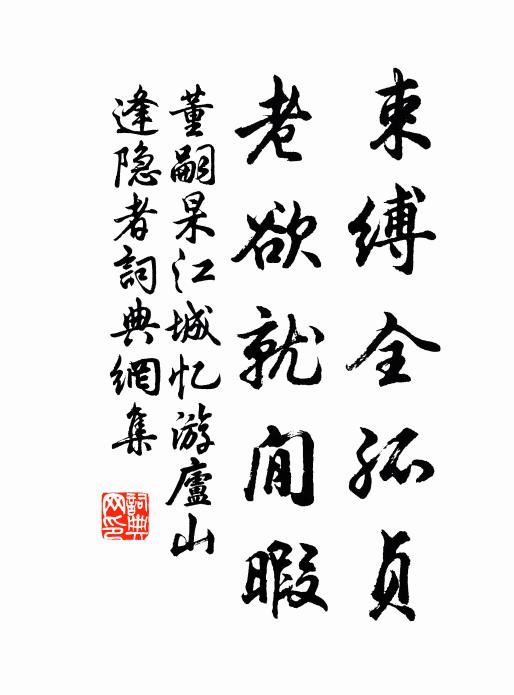 束缚全孤贞
老欲就閒暇
董嗣杲江城忆游廬山
逢隐者詞典網集
詞典网印